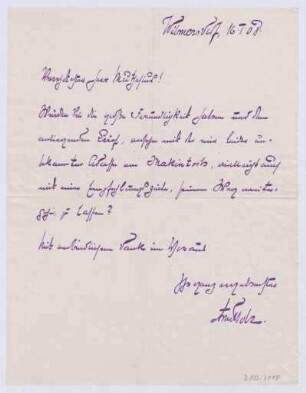 Wilmersdorf, 16.I.08.
Verehrter Herr Muthesius!
Würden Sie die große Freundlichkeit haben und den
anliegenden Brief, versehen mit der mir leider un-
bekannten Adresse von Makintosh, vielleicht auch
mit einer Empfehlung, seinen Weg
zu lassen?
Mit verbindlichem Dank im Voraus
Ihr ganz ergebenster